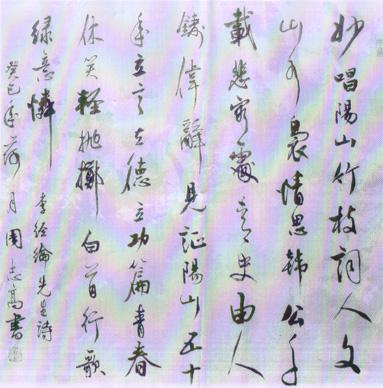 妙唱陽山竹枝詞人文
山水裊情思韓公千
載悲窮處青史由人
鑄偉辭見証陽山五十
年立言立德立功篇青春
休笑輕拋擲白首行歌
緑意憐
李经綸先生詩
癸巳年荷月周志高書